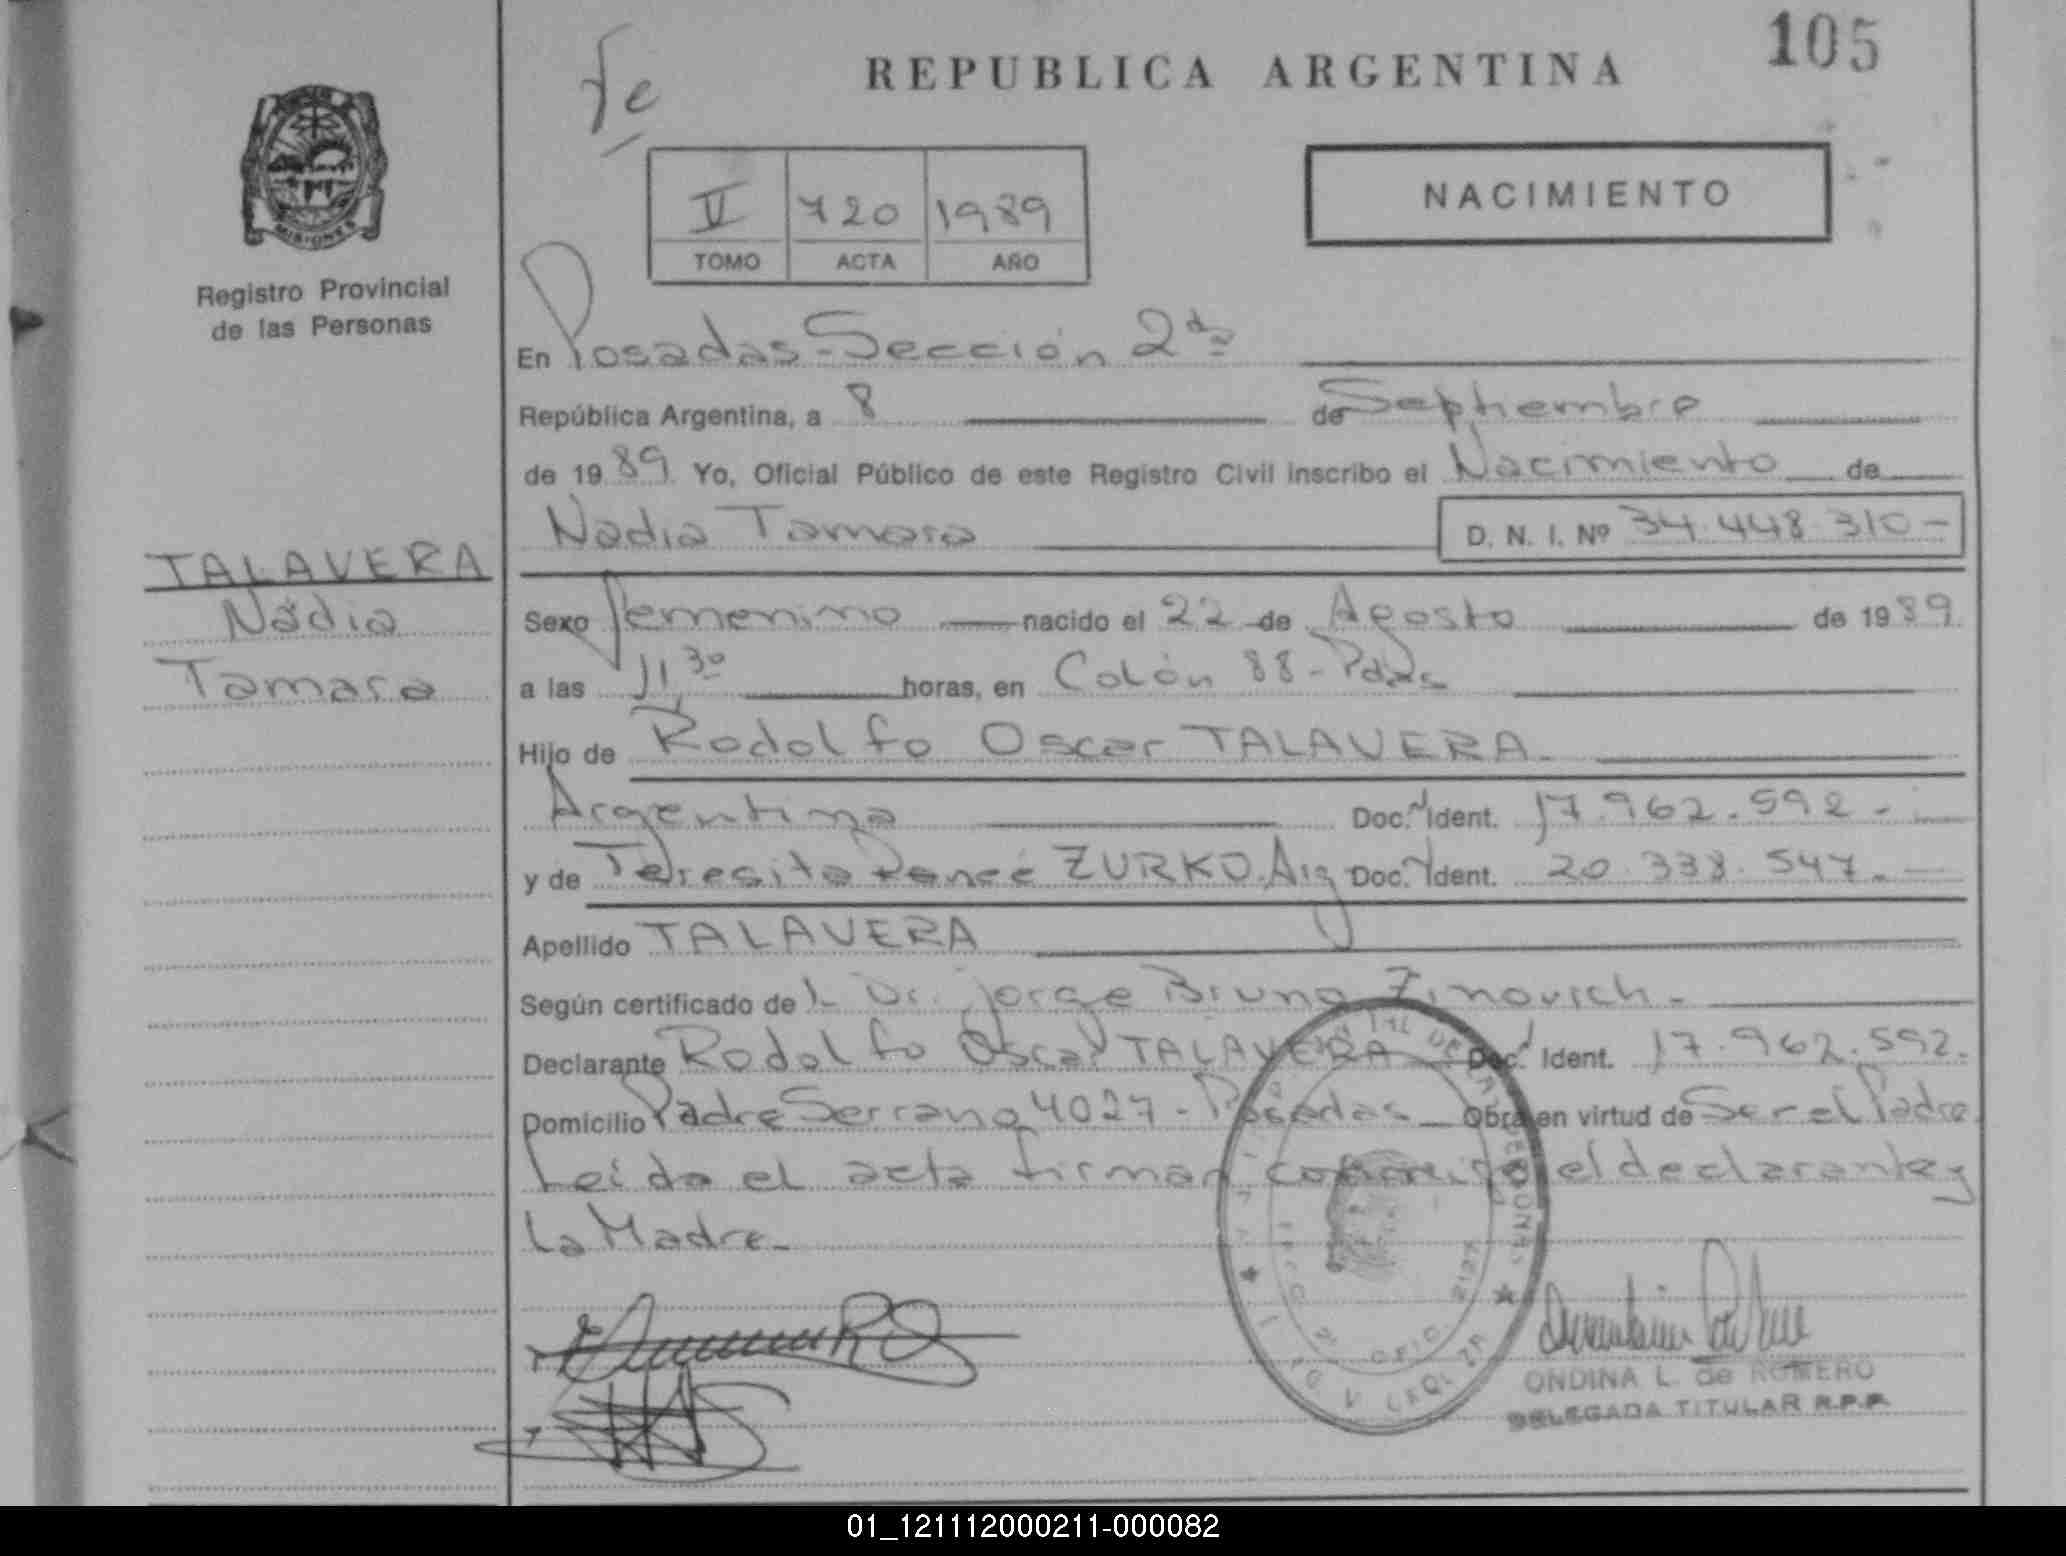 105
REPUBLICA ARGENTINA
NACIMIENTO
II 720 1989
TOMO ACTA AÑO
MISIONES
Registro Provincial
de las Personas
En Posadas-Sección 2da
República Argentina, a 8 de Septiembre
de 1989 Yo, Oficial Público de este Registro Civil inscribo el Nacimiento de
Nadia Tamara D. N. I. Nº 34.448.310-
TALAVERA
Nadia
Tamara
Sexo Femenino nacido el 22 de Agosto de 1989.
a las 11,30 horas, en Colón 88-Pdas
Hijo de Rodolfo Oscar TALAVERA
Argentina Doc. Ident. 17.962.592.-
y de Teresita Reneé ZURKO. Arg Doc. Ident. 20.338.547.-
Apellido TALAVERA
Según certificado de l- Dr. Jorge Bruno Zinovich.-
Declarante Rodolfo Oscar TALAVERA Doc. Ident. 17.962.592.
Domicilio Padre Serrano 4027-Posadas Obra en virtud de Ser el Padre.
Leída el acta firman conmigo el declarante y
la Madre.-
ONDINA L. de ROMERO
DELEGADA TITULAR R.P.P.
01_121112000211-000082